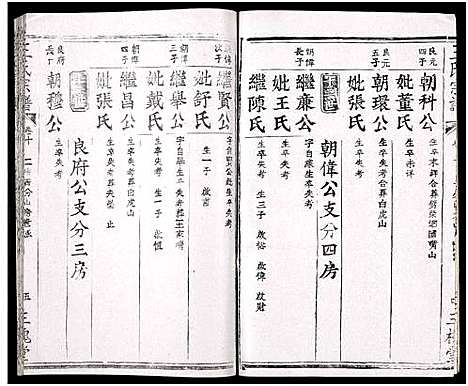 氏宗譜
良元四子
朝科公
生卒未詳合葬劉柴湖嘴山
妣董氏
生卒未詳
良元五子
朝環公
生卒失考葬白虎山
妣張氏
生卒失考
朝偉公支分四房
朝偉長子
繼兼公
字自
生卒失考
妣王氏
生卒失考
繼陳氏
生三子 啟裕 啟偉 啟財
朝偉次子
繼賢公
字自
生卒失考
妣舒氏
生一子 啟言
朝偉三子
繼舉公
生卒失考葬王家山
妣戴氏
生卒失考 生一子 啟恆
朝偉四子
繼昌公
生卒失考葬白虎山
妣張氏
生卒失考葬失考 止
良府公支分三房
良府長子
朝穆公
生卒失考
五
三槐堂